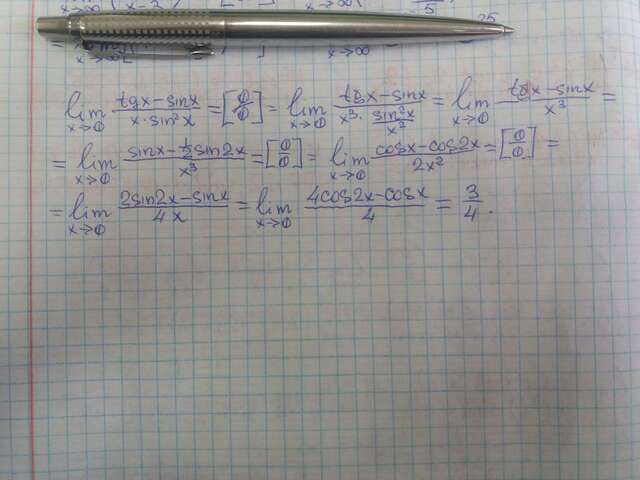 x→∞ x-3 x→∞ 5
x→∞ x→∞ 25
lim x→0 (tgx-sinx)/(x·sin²x) = [0/0] = lim x→0 (tgx-sinx)/(x³· sin²x/x²) = lim x→0 (tgx-sinx)/x³ =
= lim x→0 (sinx-½sin2x)/x³ = [0/0] = lim x→0 (cosx-cos2x)/2x² = [0/0] =
= lim x→0 (2sin2x-sinx)/4x = lim x→0 (4cos2x-cosx)/4 = 3/4.